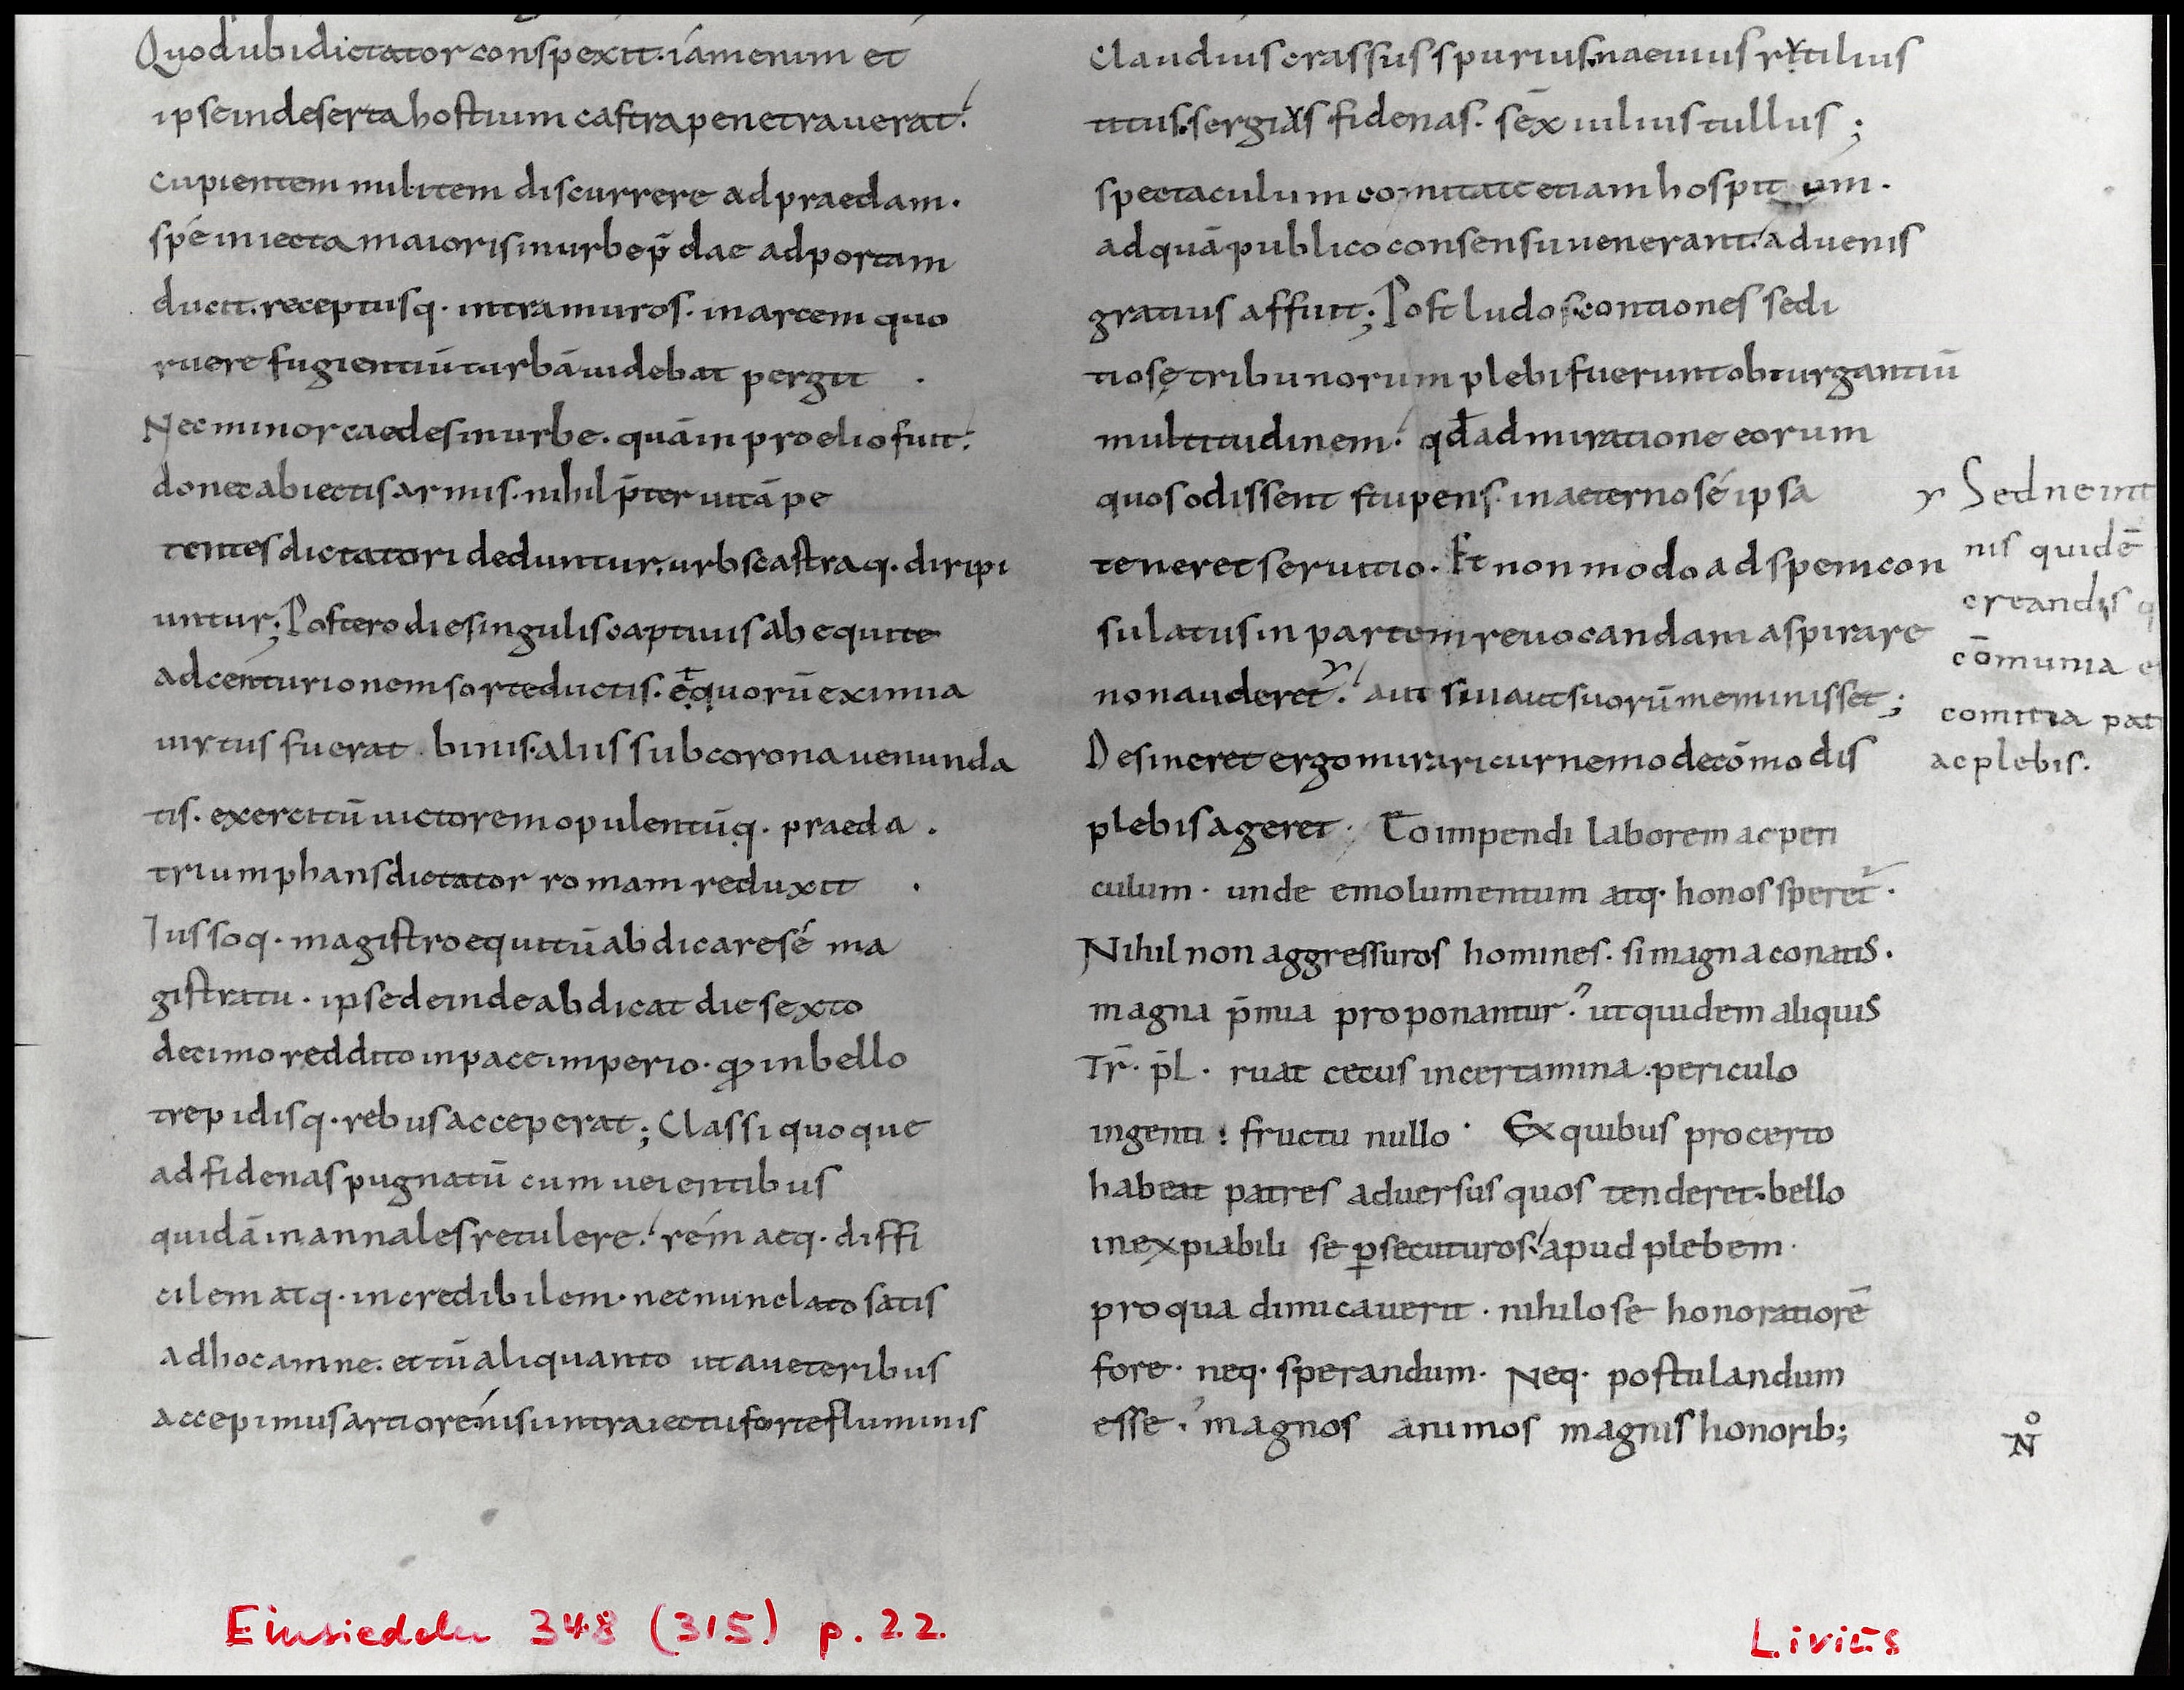 Quod ubi dictator conspexit. iám enim et
ipse in deserta hostium castra penetrauerat.
cupientem militem discurrere ad praedam.
spé iniecta maioris in urbe p̄dae ad portam
ducit. receptusq. intra muros. in arcem quo
ruere fugientiū turbā uidebat pergit .
Nec minor caedes in urbe. quā in proelio fuit.
donec abiectis armis. nihil p̄ter uitā pe
tentes dictatori deduntur. urbs castraq. diripi
untur; Postero die singulis captiuis ab equite
ad centurionem sorte ductis. et quorū eximia
uirtus fuerat. binis. aliis sub corona uenunda
tis. exercitū uictorem opulentūq. praeda.
triumphans dictator romam reduxit .
Iussoq. magistro equitū abdicare sé ma
gistratu. ipse deinde abdicat die sexto
decimo reddito in pace imperio. qđ in bello
trepidisq. rebus acceperat; Classi quoque
ad fidenas pugnatū cum ueientibus
quidā in annales retulere. rém aeq. diffi
cilem atq. incredibilem. nec nunc lato satis
ad hoc amne. et tū aliquanto ut a ueteribus
accepimus artiore. nisi in traiectu forte fluminis
Claudius crassus spurius naeuius rutilius
titus. sergius fidenas. sēx iulius tullus;
spectaculum comitate etiam hospitum.
ad quā publico consensu uenerant. aduenis
gratius affuit; Post ludos contiones sedi
tiosę tribunorum plebi fuerunt obiurgantiū
multitudinem. qđ admiratione eorum
quos odissent stupens. in aeterno sé ipsa
teneret seruitio. Et non modo ad spem con
sulatus in partem reuocandam aspirare
non auderet. aut sui aut suorū meminisset;
Desineret ergo mirari cur nemo de cōmodis
plebis ageret. Eo impendi laborem ac peri
culum. unde emolumentum atq. honos speret.
Nihil non aggressuros homines. si magna conatis.
magna p̄mia proponantur. ut quidem aliquis
Tr̄. pl̄. ruat cecus in certamina. periculo
ingenti. fructu nullo. Ex quibus pro certo
habeat patres aduersus quos tenderet. bello
inexpiabili se ꝑsecuturos. apud plebem.
pro qua dimicauerit. nihilo se honoratiorē
fore. neq. sperandum. Neq. postulandum
esse. magnos animos magnis honorib;
Sed ne int
nis quidē
creandis q
cōmunia e
comitia pat
ac plebis.
N̊
Einsiedeln 348 (315) p. 22.
Livius